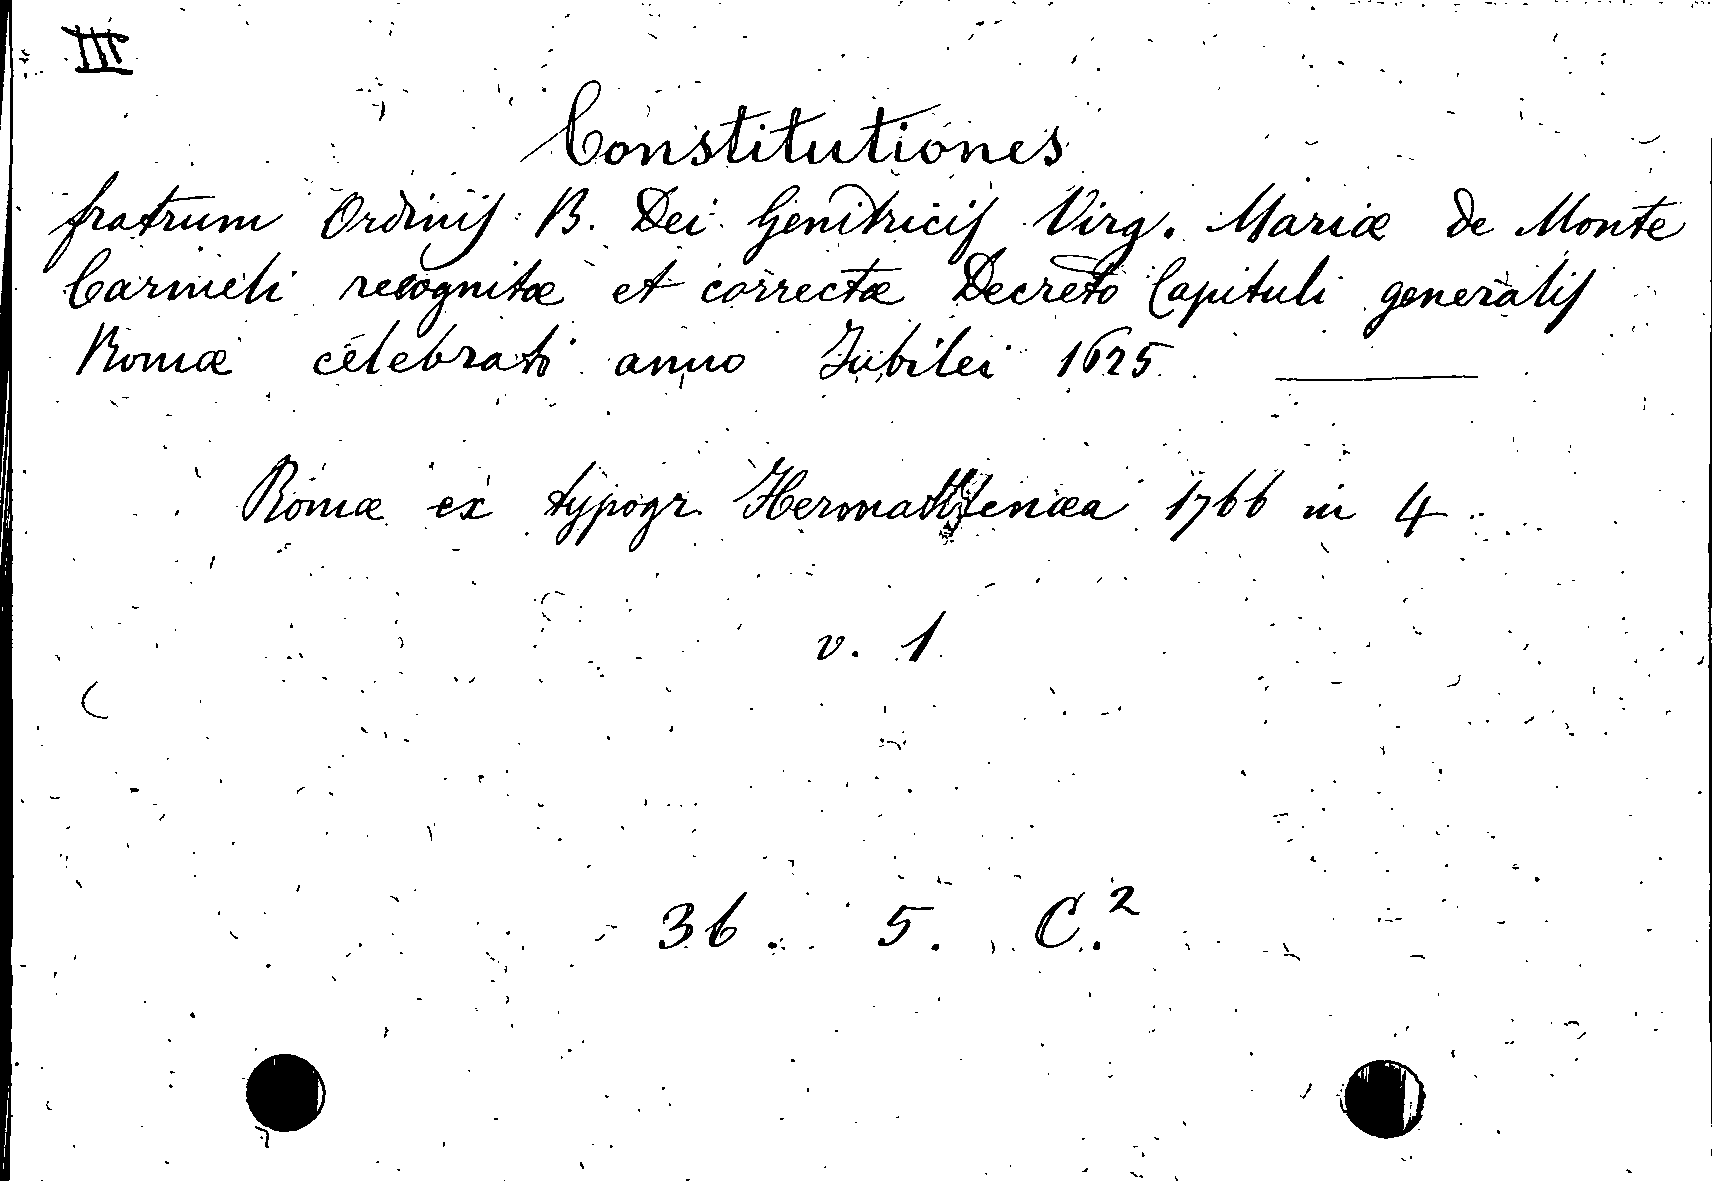 III
Constitutiones
fratrum Ordinis B. Dei Genitricis Virg. Mariæ de Monte
Carmeli recognitæ et correctæ Decreto Capituli generalis
Romæ celebrati anno Jubilei 1625
Romæ ex typogr. Hermathenæa 1766 in 4
v. 1
36. 5. C.²